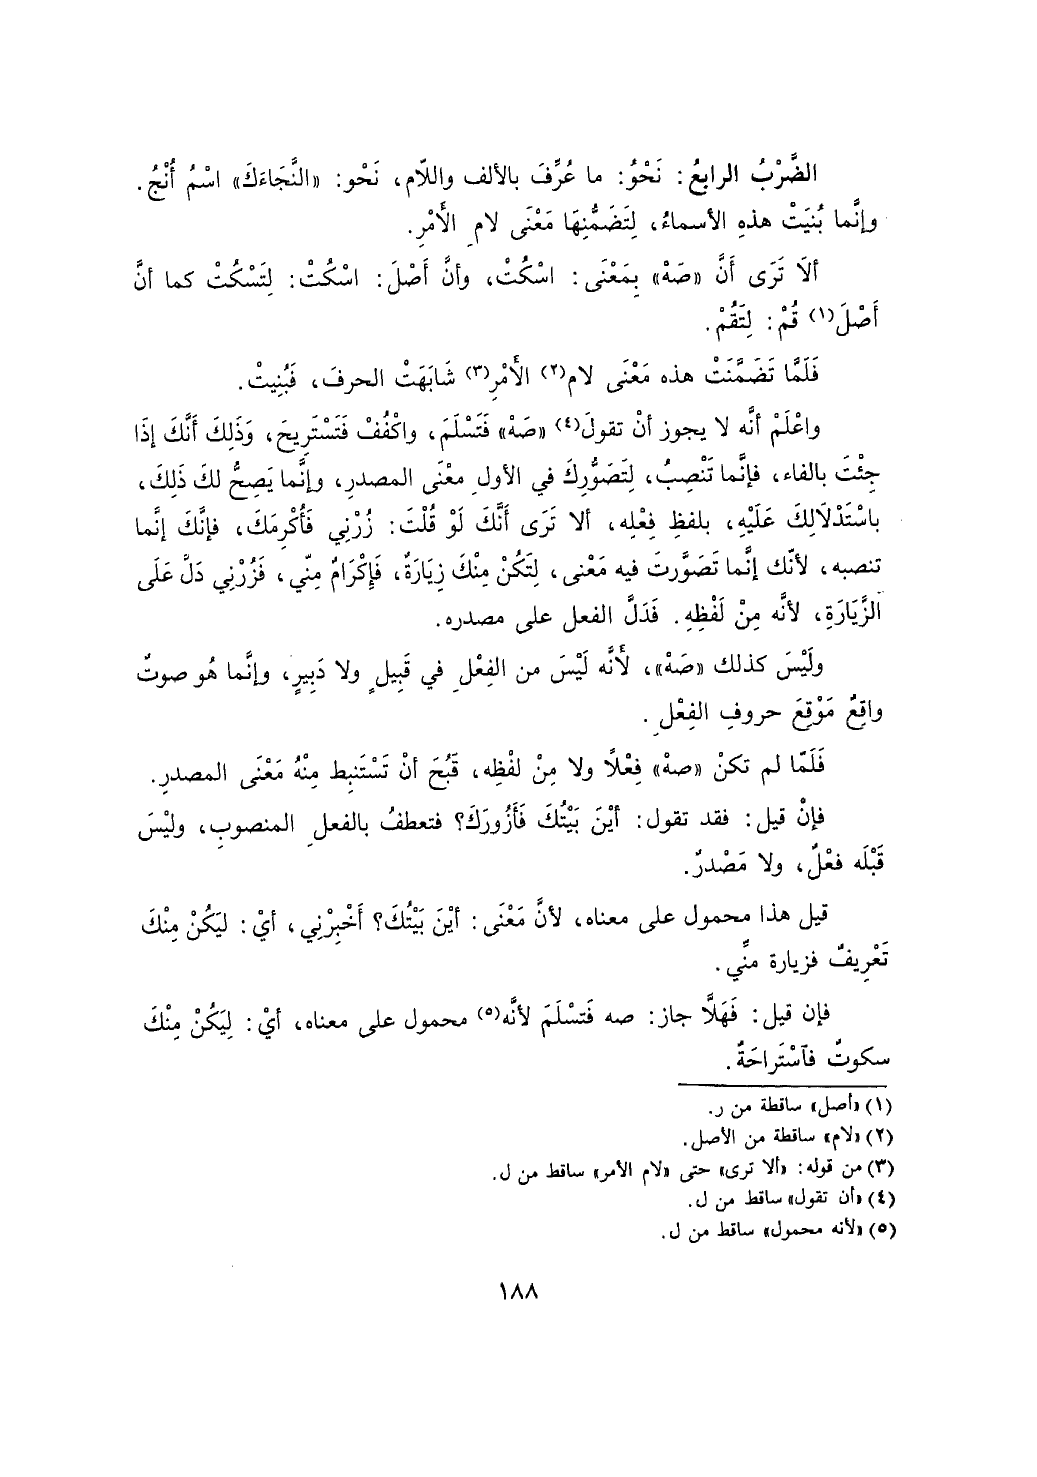 الضَّرْبُ الرابعُ: نَحْوُ: ما عُرِّفَ بالألف واللّام، نَحْو: «النَّجَاءَكَ» اسْمُ أُنْجُ.
وإنَّما بُنيَتْ هذهِ الأسماءُ، لِتَضَمُّنِهَا مَعْنَى لامِ الأَمْرِ.
ألاَ تَرَى أَنَّ «صَهْ» بِمَعْنَى: اسْكُتْ، وأنَّ أَصْلَ: اسْكُتْ: لِتَسْكُتْ كما أنَّ
أَصْلَ(١) قُمْ: لِتَقُمْ.
فَلَمَّا تَضَمَّنَتْ هذه مَعْنَى لام(٢) الأَمْرِ(٣) شَابَهَتْ الحرفَ، فَبُنِيتْ.
واعْلَمْ أنَّه لا يجوز أنْ تقولَ(٤) «صَهْ» فَتَسْلَمَ، واكْفُفْ فَتَسْتَرِيحَ، وَذَلِكَ أَنَّكَ إذَا
جِئْتَ بالفاء، فإنَّما تَنْصِبُ، لِتَصَوُّرِكَ في الأولِ معْنَى المصدرِ، وإنَّما يَصِحُّ لكَ ذَلِكَ،
باسْتَدْلَالِكَ عَلَيْهِ، بلفظِ فِعْلِه، ألا تَرَى أَنَّكَ لَوْ قُلْتَ: زُرْنِي فَأُكْرِمَكَ، فإنَّكَ إنَّما
تنصبه، لأنّك إنَّما تَصَوَّرتَ فيه مَعْنى، لِتَكُنْ مِنْكَ زِيَارَةٌ، فَإِكْرَامٌ مِنّي، فَزُرْنِي دَلَّ عَلَى
الزِّيَارَةِ، لأنَّه مِنْ لَفْظِهِ. فَدَلَّ الفعل على مصدره.
ولَيْسَ كذلك «صَهْ»، لأَنَّه لَيْسَ من الفِعْلِ في قَبِيلٍ ولا دَبِيرٍ، وإنَّما هُو صوتٌ
واقعٌ مَوْقِعَ حروفِ الفِعْلِ.
فَلَمّا لم تكنْ «صهْ» فِعْلًا ولا مِنْ لفْظِه، قَبُحَ أنْ تَسْتَنبِط مِنْهُ مَعْنَى المصدرِ.
فإنْ قيل: فقد تقول: أيْنَ بَيْتُكَ فَأَزُورَكَ؟ فتعطفُ بالفعلِ المنصوبِ، وليْسَ
قَبْلَه فعْلٌ، ولا مَصْدرٌ.
قيل هذا محمول على معناه، لأنَّ مَعْنَى: أيْنَ بَيْتُكَ؟ أَخْبِرْنِي، أيْ: ليَكُنْ مِنْكَ
تَعْرِيفٌ فزيارة منِّي.
فإن قيل: فَهَلَّا جاز: صه فَتسْلَمَ لأنَّه(٥) محمول على معناه، أيْ: لِيَكُنْ مِنْكَ
سكوتٌ فآسْتَراحَةٌ.
(١) «أصل» ساقطة من ر.
(٢) «لام» ساقطة من الأصل.
(٣) من قوله: «ألا ترى» حتى «لام الأمر» ساقط من ل.
(٤) «أن تقول» ساقط من ل.
(٥) «لأنه محمول» ساقط من ل.
١٨٨